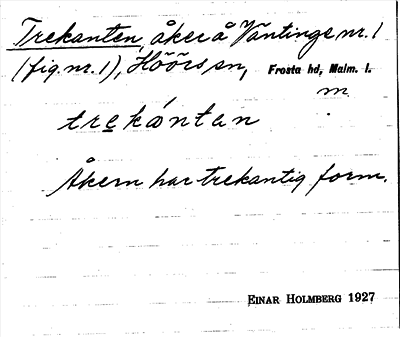 Trekanten, åker å Väntinge nr. 1
(fig. nr. 1), Höörs sn, Frosta hd, Malm. l.
m.
trekántan
Åkern har trekantig form.
EINAR HOLMBERG 1927